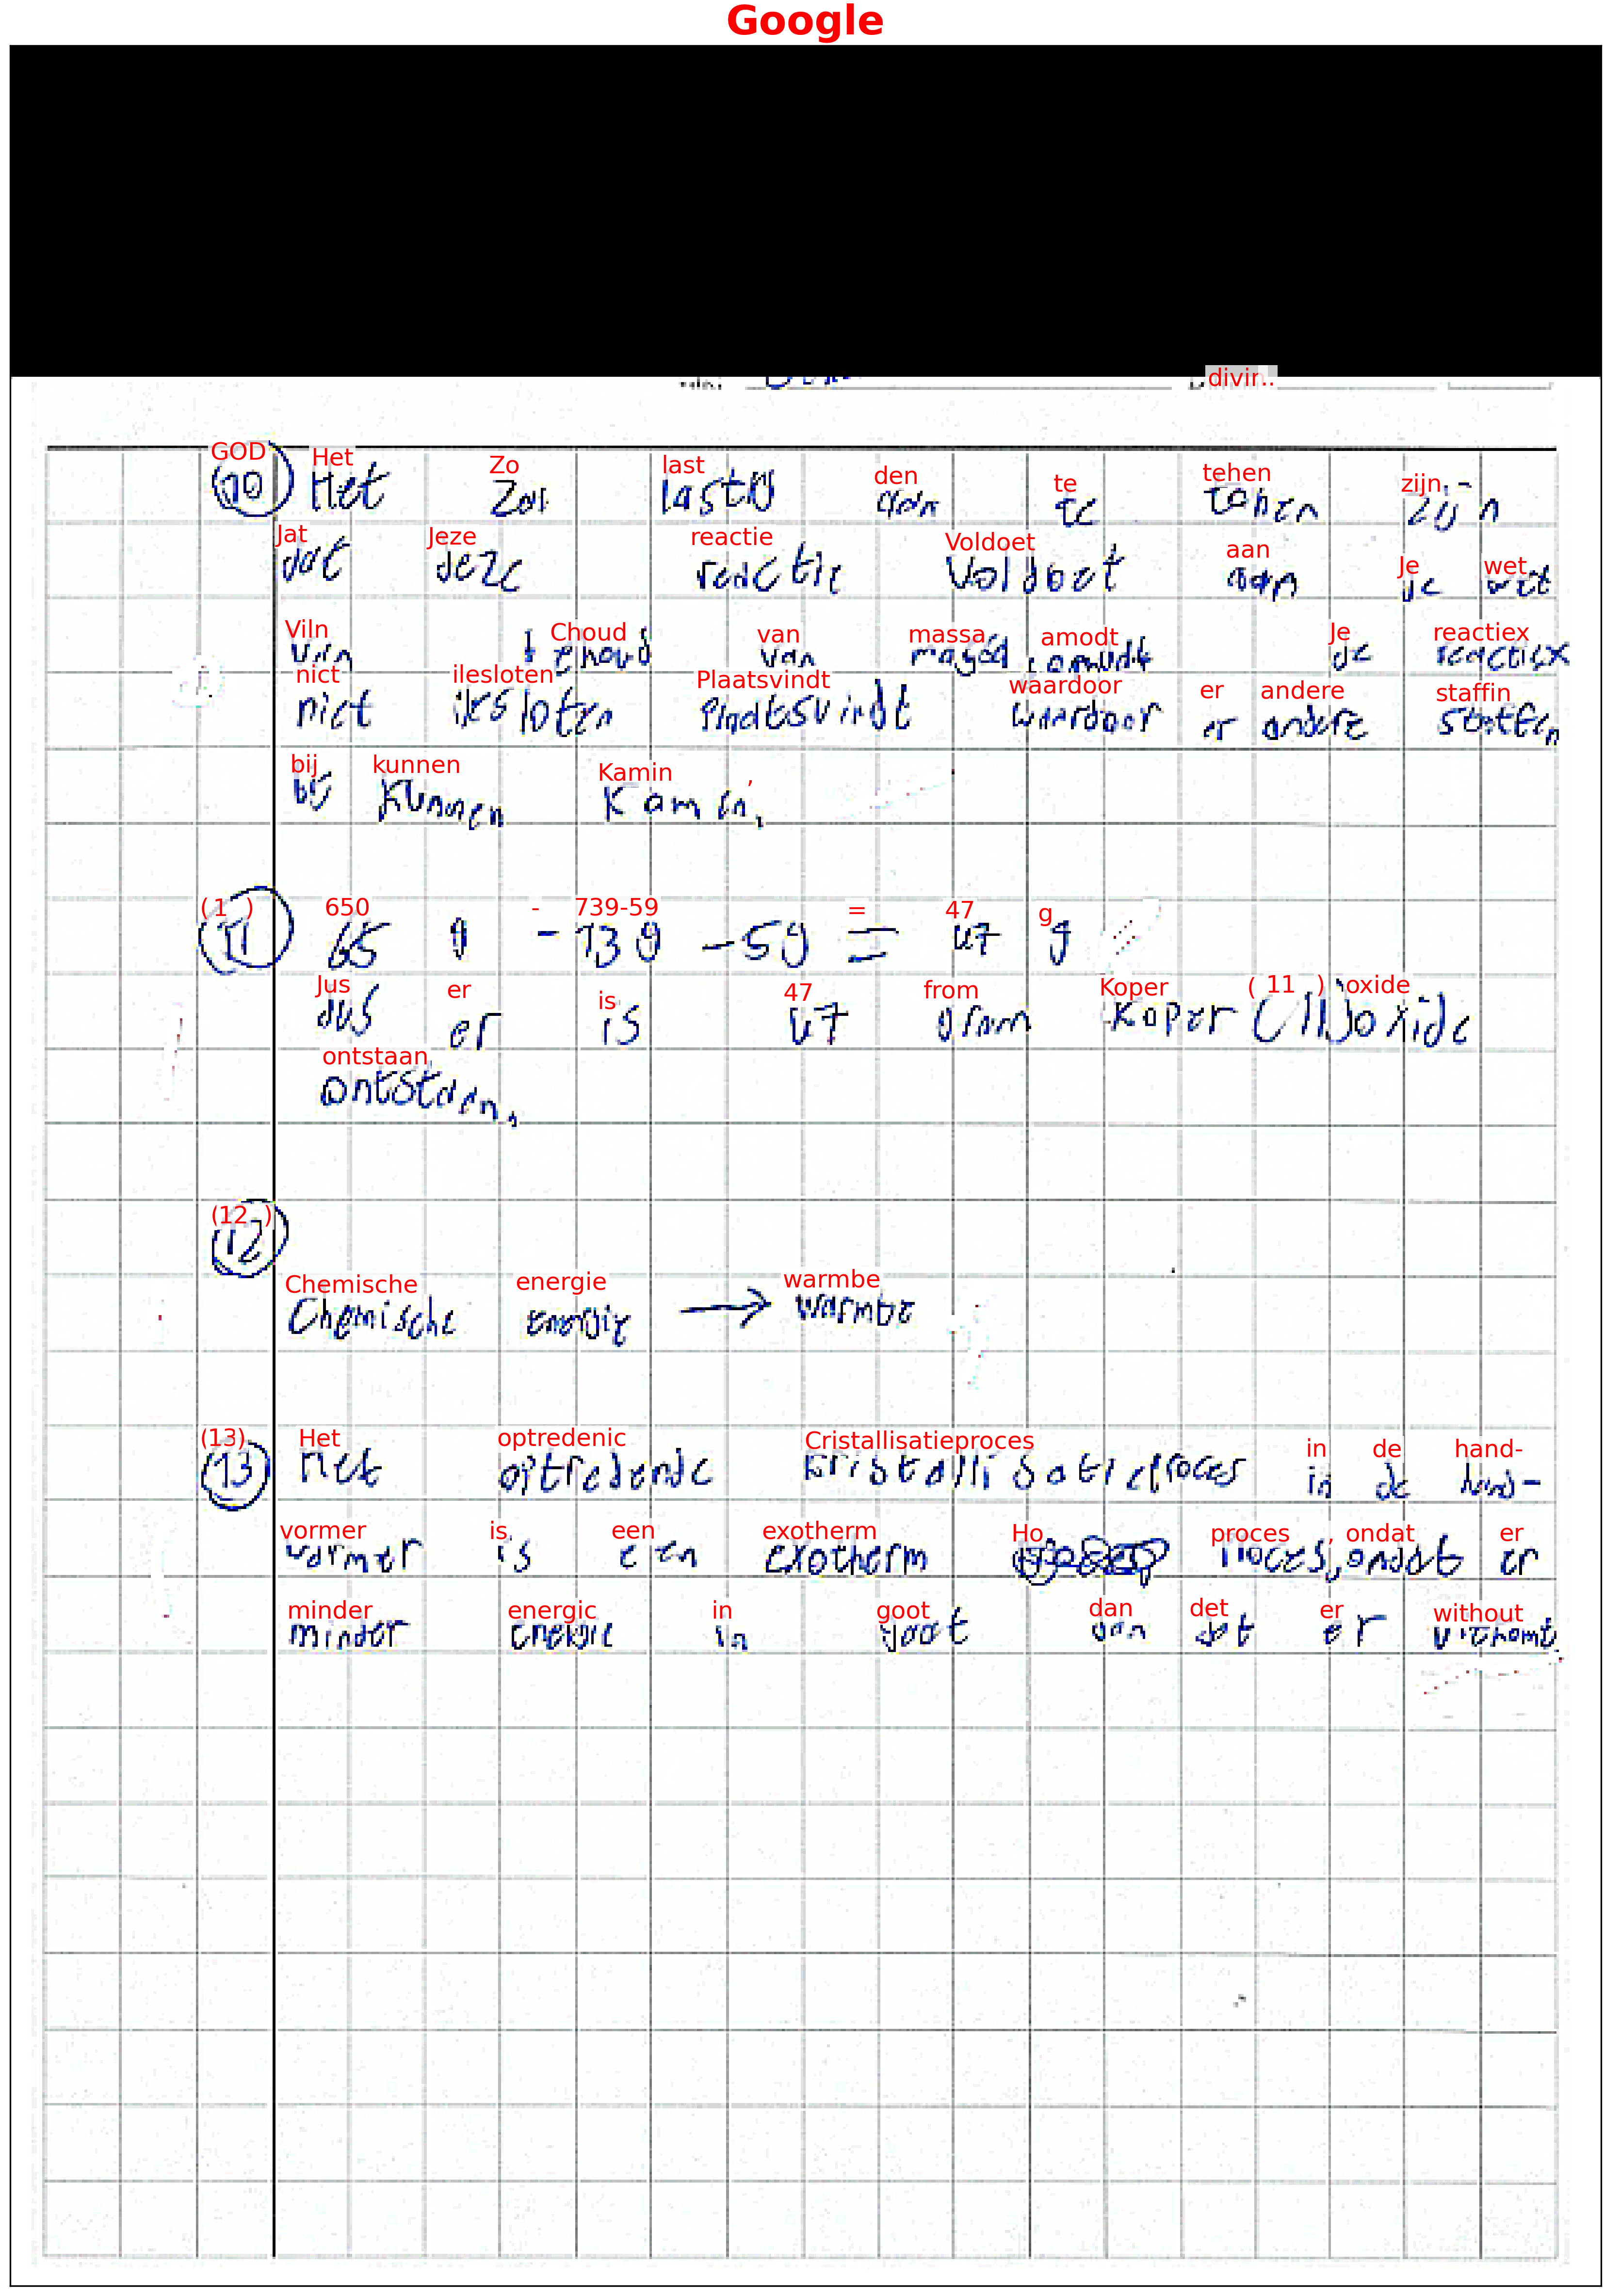 Google
divin..
GOD Het Zo last den te tehen zijn
10 Het Zou lastig aan te tonen zijn
Jat Jeze reactie Voldoet aan Je wet
dat deze reactie Voldoet aan de wet
Viln Choud van massa amodt Je reactiex
van behoud van massa, omdat de reactie
nict ilesloten Plaatsvindt waardoor er andere staffin
niet gesloten Plaatsvindt waardoor er andere stoffen
bij kunnen Kamin ,
bij kunnen Kamen.
(1 ) 650 - 739-59 = 47 g
11 65 g - 13 g - 5 g = 47 g
Jus er is 47 from Koper ( 11 ) oxide
dus er is 47 gram Koper (II) oxide
ontstaan
ontstaan.
(12 )
12
Chemische energie warmbe
Chemische energie → warmte
(13) Het optredenic Cristallisatieproces in de hand-
13 Het optredende Kristallisatieproces in de hand-
vormer is een exotherm Ho proces , ondat er
warmer is een exotherm proces, omdat er
minder energic in goot dan det er without
minder energie in gaat dan dat er uitkomt.